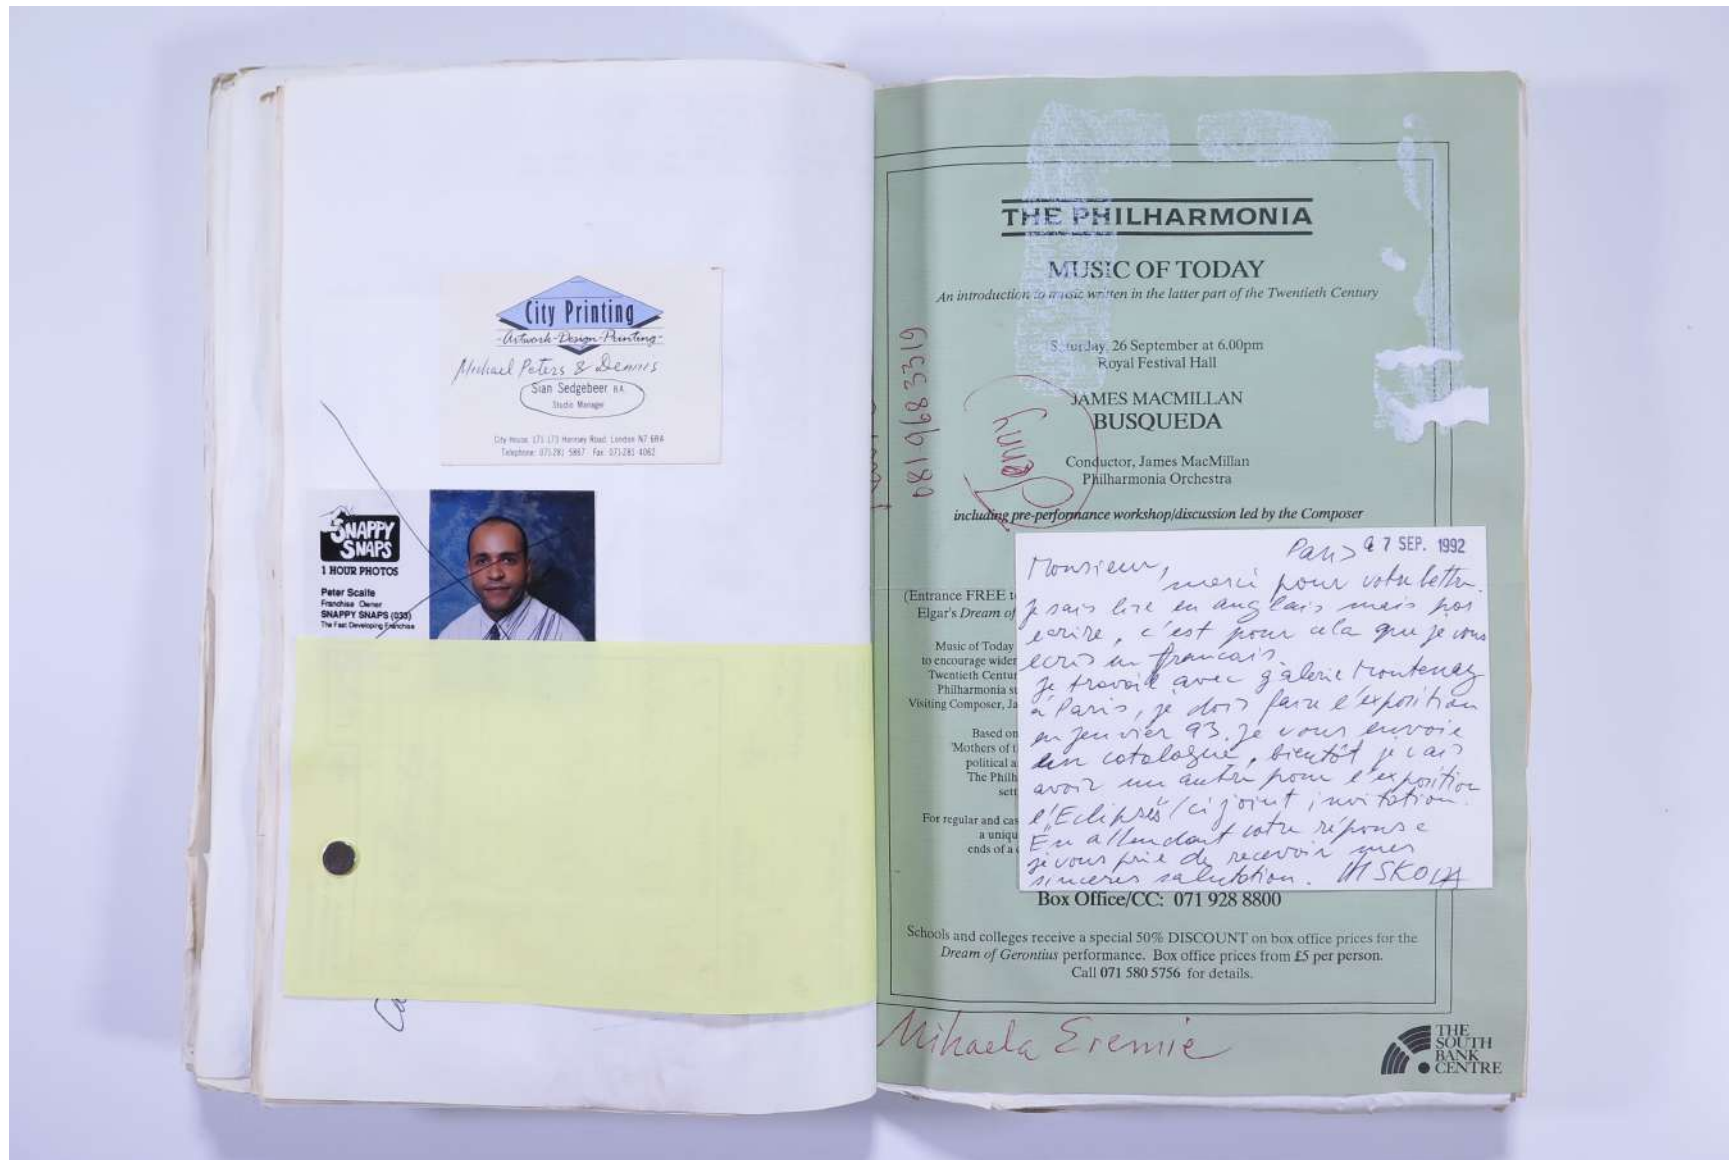 City Printing
-Artwork-Design-Printing-
Michael Peters & Dennis
Sian Sedgebeer BA
Studio Manager
City House 171-173 Hornsey Road London N7 6RA
Telephone: 071-281 5867 Fax: 071-281 4062
SNAPPY
SNAPS
1 HOUR PHOTOS
Peter Scaife
Franchise Owner
SNAPPY SNAPS (033)
The Fast Developing Franchise
THE PHILHARMONIA
MUSIC OF TODAY
An introduction to music written in the latter part of the Twentieth Century
Saturday, 26 September at 6.00pm
Royal Festival Hall
JAMES MACMILLAN
BUSQUEDA
Conductor, James MacMillan
Philharmonia Orchestra
including pre-performance workshop/discussion led by the Composer
081 968 3319
Jenny
(Entrance FREE t
Elgar's Dream of
Music of Today
to encourage wider
Twentieth Centur
Philharmonia s
Visiting Composer, Ja
Based on
'Mothers of t
political a
The Philh
sett
For regular and cas
a uniqu
ends of a
Paris 7 SEP. 1992
Monsieur,
merci pour votre lettre.
Je sais lire en anglais mais pas
ecrire, c'est pour cela que je vous
ecris en francais.
Je travail avec galerie Montenay
à Paris, je dois faire l'exposition
en Janvier 93. Je vous envoie
un catalogue, bientôt je vais
avoir un autre pour l'exposition
l'Eclipses /ci joint invitation.
En attendant votre réponse
je vous prie de recevoir mes
sinceres salutation. M SKODA
Box Office/CC: 071 928 8800
Schools and colleges receive a special 50% DISCOUNT on box office prices for the
Dream of Gerontius performance. Box office prices from £5 per person.
Call 071 580 5756 for details.
Mihaela Eremie
THE
SOUTH
BANK
CENTRE